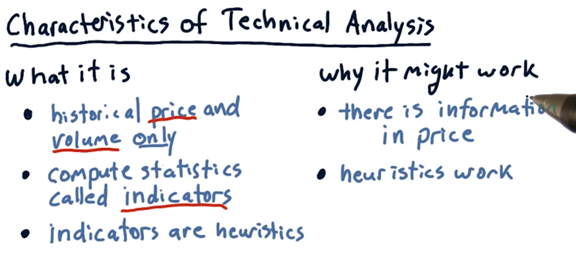 Characteristics of Technical Analysis
what it is
• historical price and
volume only
• compute statistics
called indicators
• indicators are heuristics
why it might work
• there is information
in price
• heuristics work